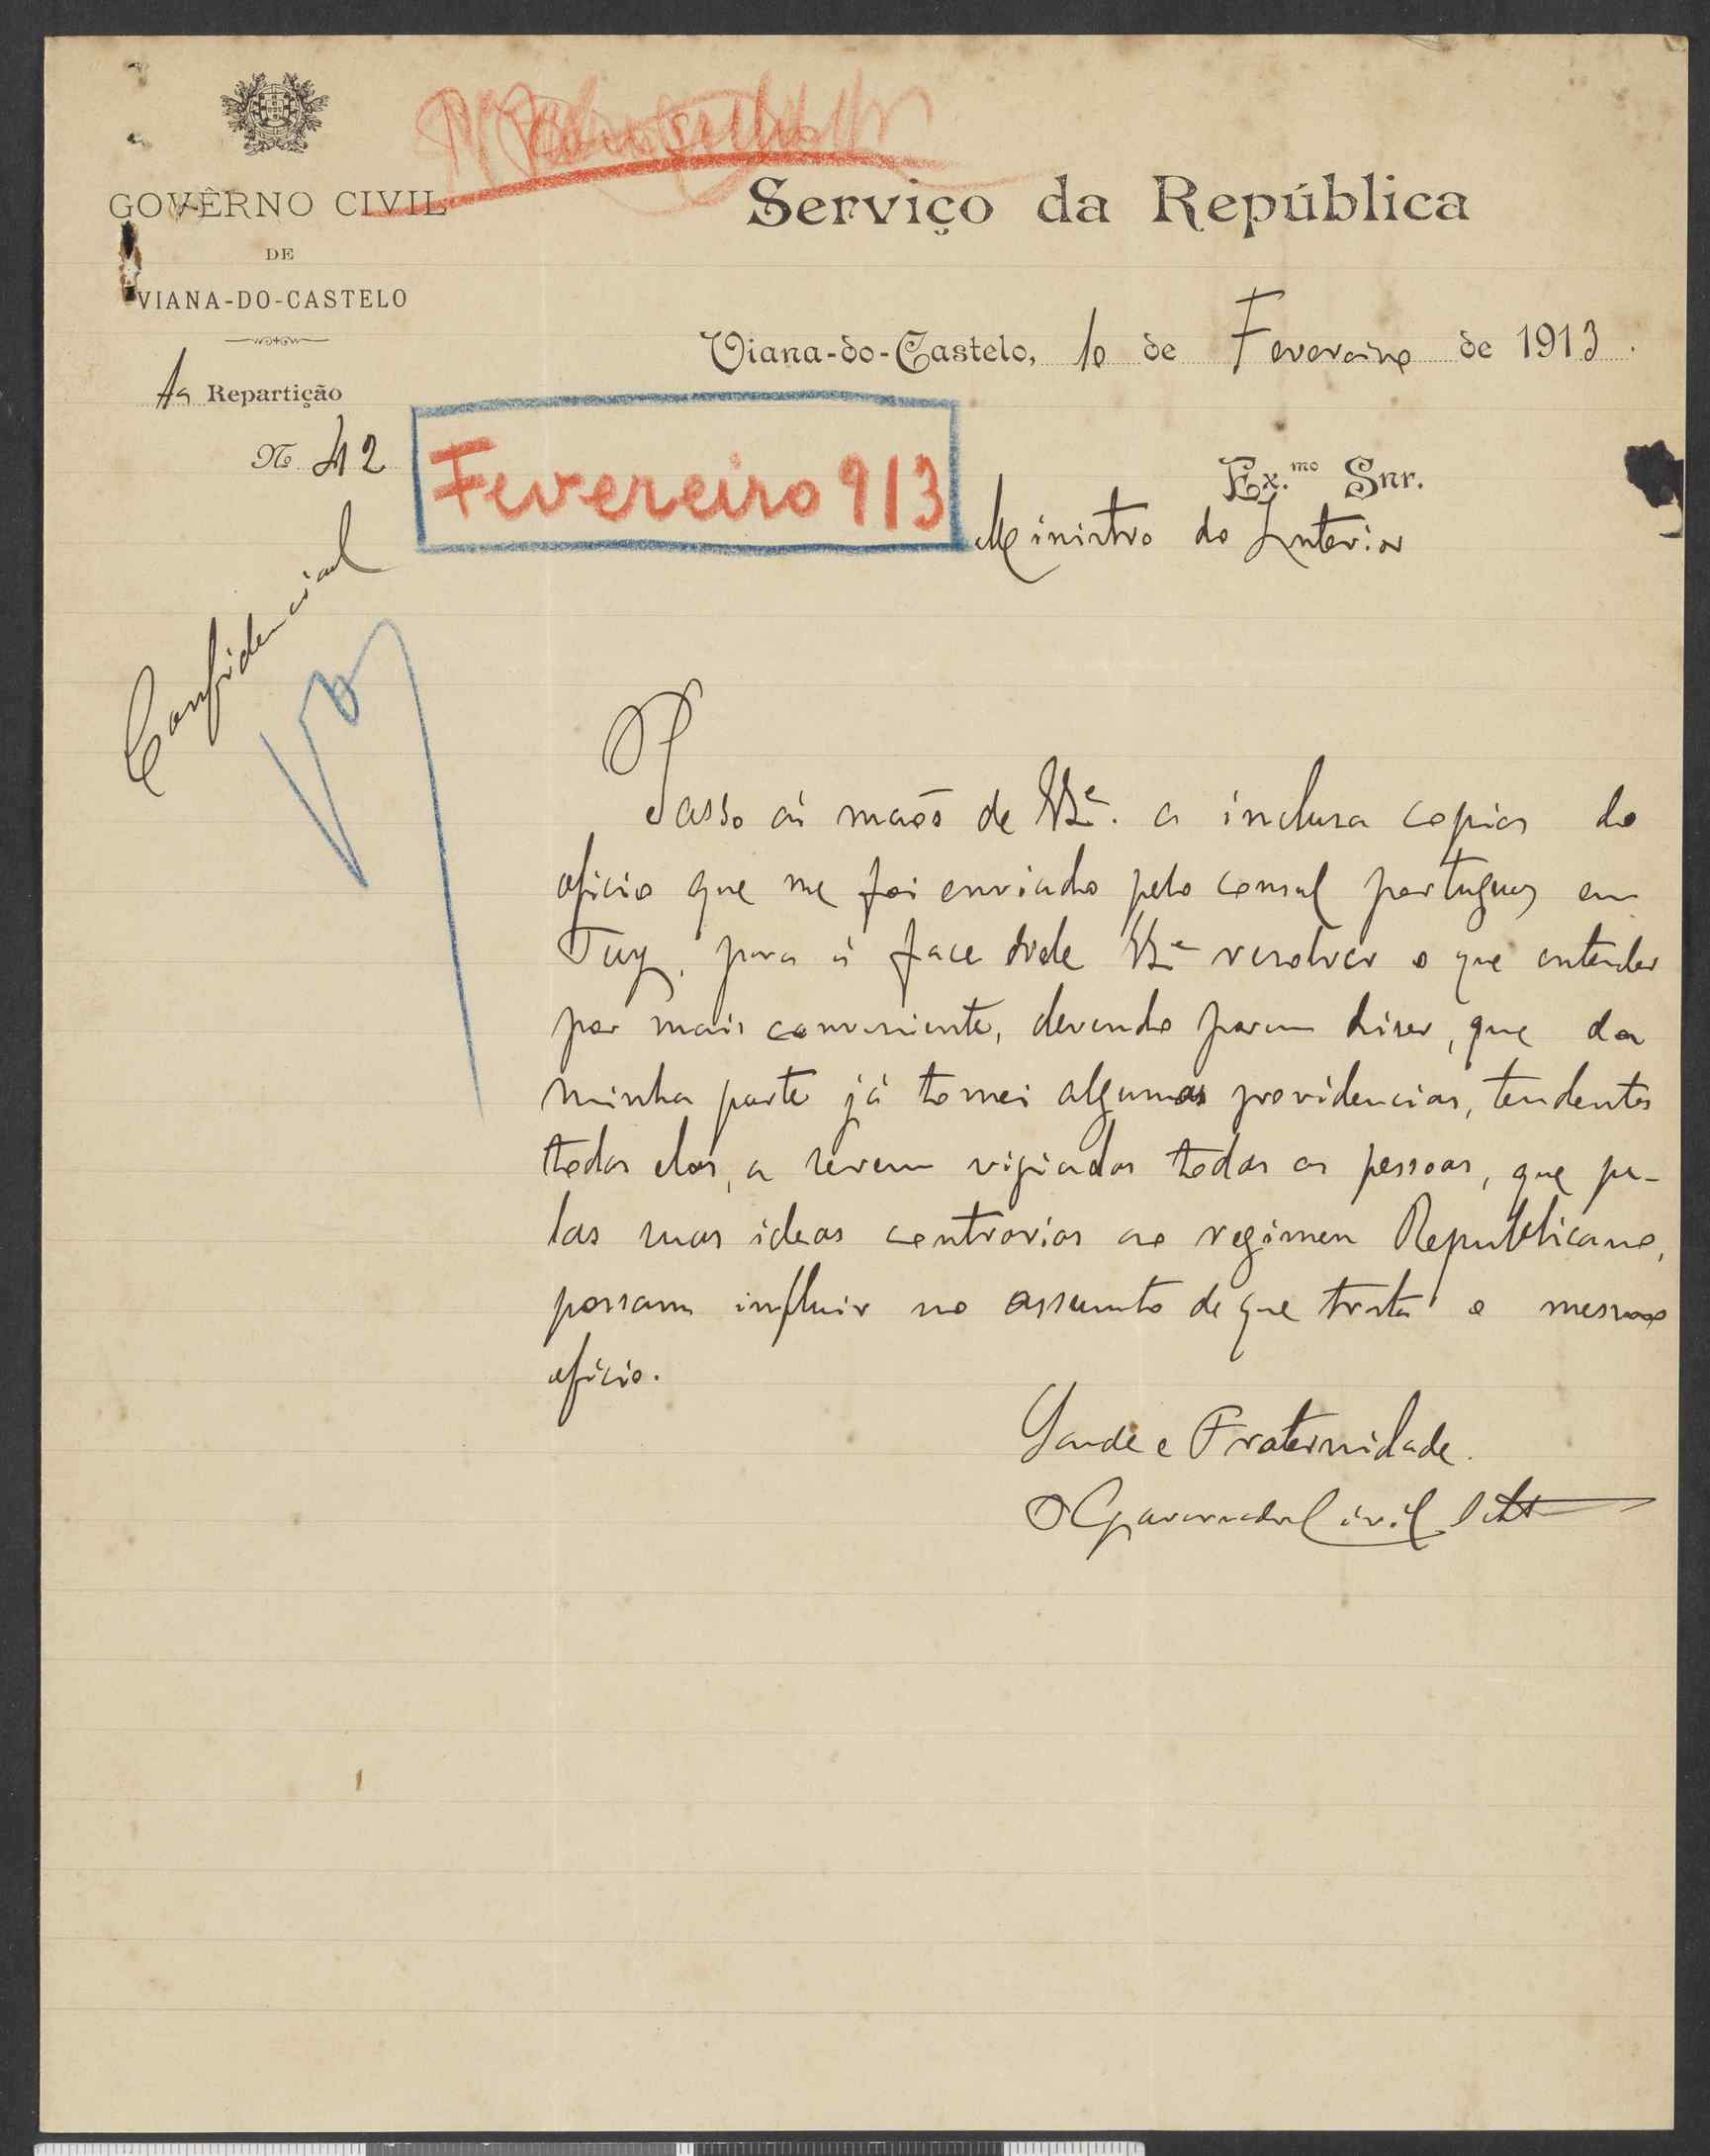 GOVÊRNO CIVIL
DE
VIANA-DO-CASTELO
1a Repartição
No 42
Confidencial
Serviço da República
Viana-do-Castelo, 10 de Fevereiro de 1913.
Fevereiro 913
Ex.mo Snr.
Ministro do Interior
Passo ás maõs de V.Exe. a inclusa copia do
oficio que me foi enviado pelo consul portuguez em
Tuy, para á face dele V.Exe resolver o que entender
por mais conveniente, devendo porem diser, que da
minha parte já tomei algumas providencias, tendentes
todas elas, a serem vigiadas todas as pessoas, que pe-
las suas ideas contrarias ao regimen Republicano,
possam influir no assumto de que trata o mesmo
oficio.
Saude e Fraternidade.
O Governador Civil